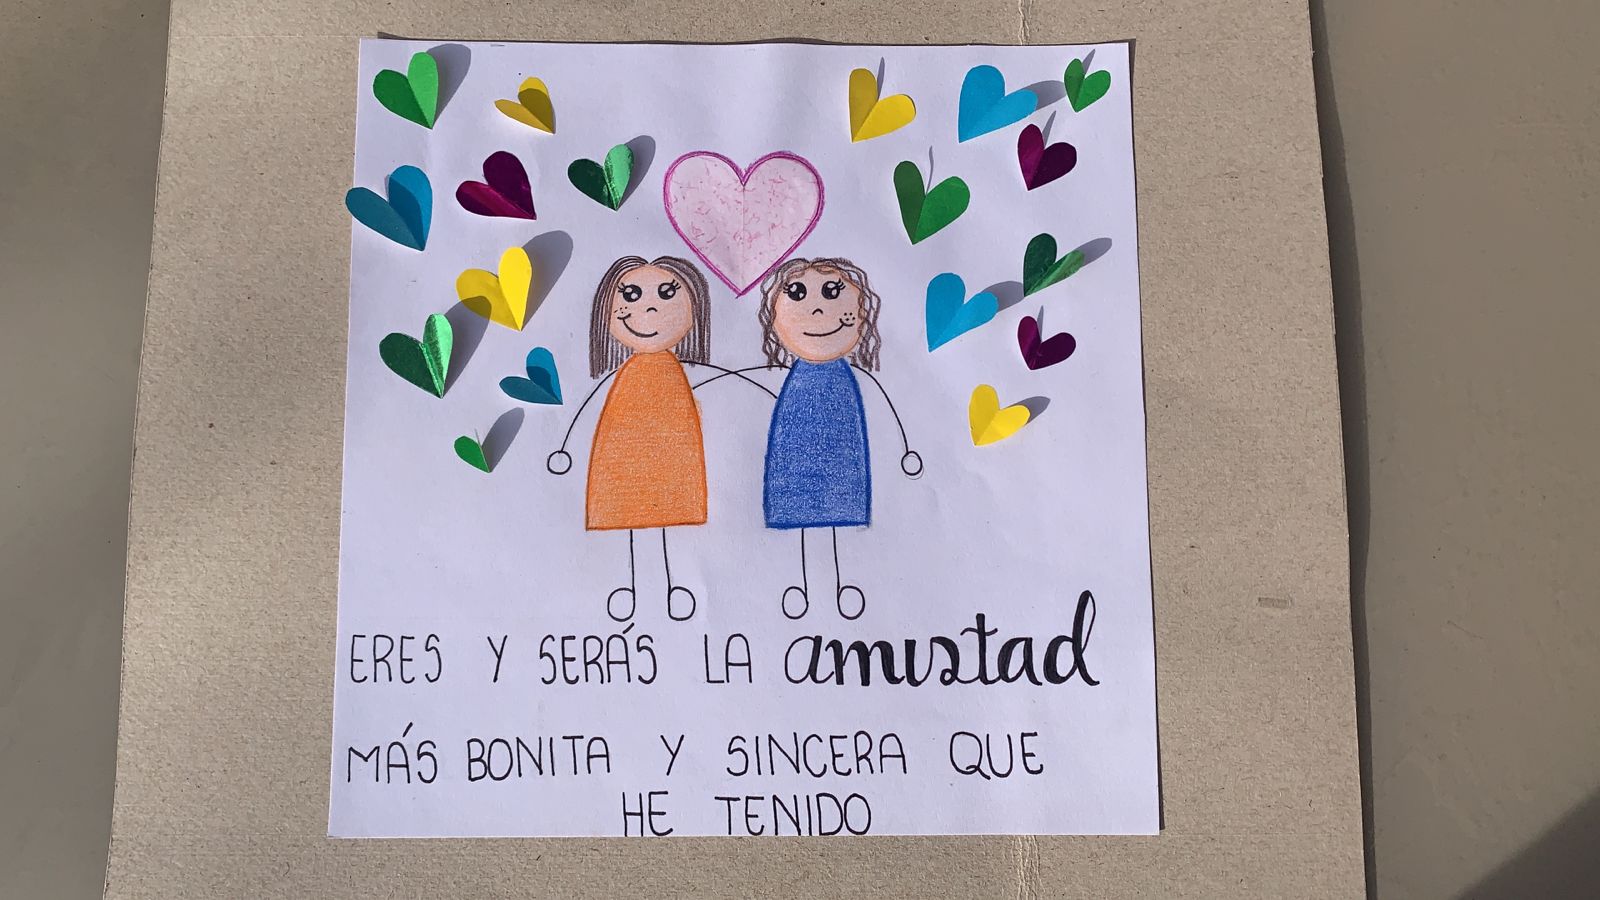 ERES Y SERÁS LA amistad
MÁS BONITA Y SINCERA QUE
HE TENIDO